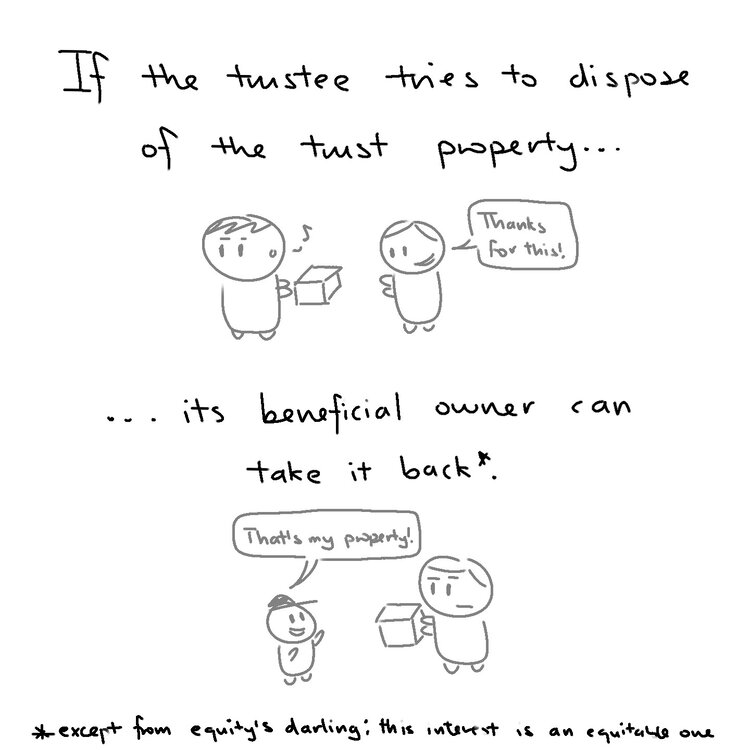 If the trustee tries to dispose
of the trust property...
Thanks
for this!
... its beneficial owner can
take it back*.
That's my property!
*except from equity's darling: this interest is an equitable one